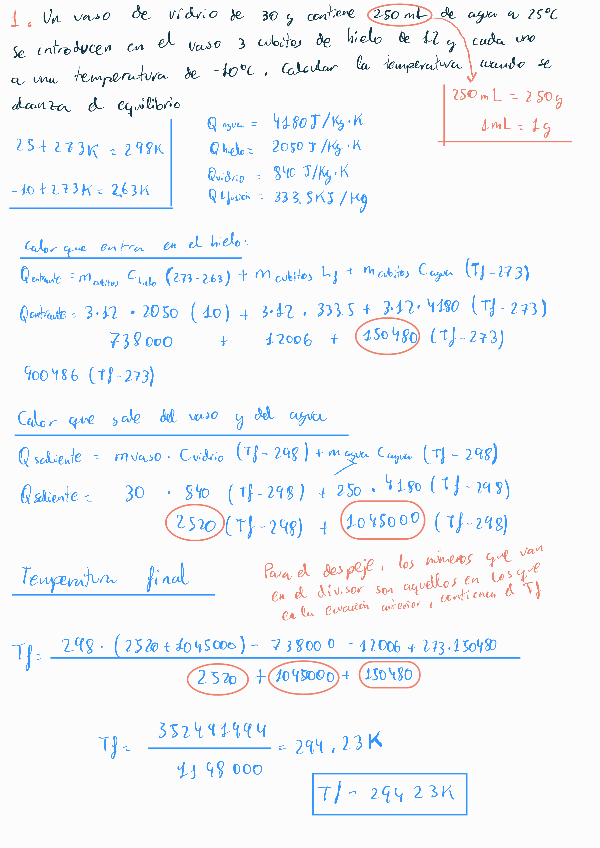 1. Un vaso de vidrio de 30 g contiene 250 mL de agua a 25ºC
se introducen en el vaso 3 cubitos de hielo de 12 g cada uno
a una temperatura de -10ºC. Calcular la temperatura cuando se
alcanza el equilibrio
250 mL = 250 g
1 mL = 1 g
25 + 273K = 298K
-10 + 273K = 263K
Q agua = 4180 J/Kg·K
Q hielo = 2050 J/Kg·K
Q vidrio = 840 J/Kg·K
Q Lfusión = 333.5 KJ/Kg
Calor que entra en el hielo:
Qentrante = m cubitos C hielo (273-263) + m cubitos Lf + m cubitos C agua (Tf-273)
Qentrante = 3·12 · 2050 (10) + 3·12 · 333.5 + 3·12 · 4180 (Tf-273)
738000 + 12006 + 150480 (Tf-273)
900486 (Tf-273)
Calor que sale del vaso y del agua
Qsaliente = m vaso · C vidrio (Tf - 298) + m agua C agua (Tf - 298)
Qsaliente = 30 · 840 (Tf-298) + 250 · 4180 (Tf - 298)
2520 (Tf-298) + 1045000 (Tf-298)
Temperatura final
Para el despeje, los números que van
en el divisor son aquellos en los que
en la ecuación anterior, contienen el Tf
Tf = 298 · (2520 + 1045000) - 738000 - 12006 + 273·150480
2520 + 1045000 + 150480
Tf = 352491994 = 294,23K
1198000
Tf = 294 23K